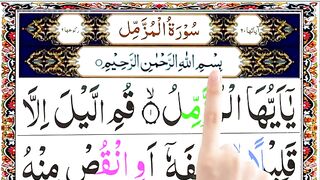 سُوْرَةُ الْمُزَّمِّل
بِسْمِ اللهِ الرَّحْمٰنِ الرَّحِيْمِ
يٰۤاَيُّهَا الْمُزَّمِّلُ ۙ۱ قُمِ الَّيْلَ اِلَّا
قَلِيْلًا اَوِ انْقُصْ مِنْهُ